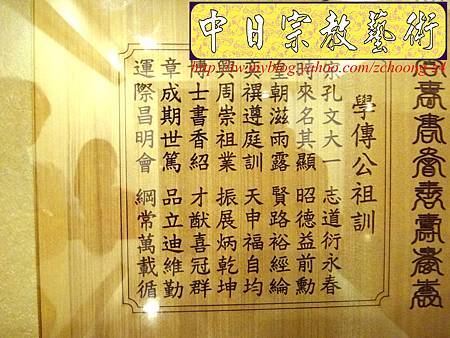 中日宗教藝術
學傳公祖訓
孔文大一 志道衍永春
來名其顯 昭德益前勳
朝滋雨露 賢路裕經綸
禩遵庭訓 天申福自均
周崇祖業 振展炳乾坤
士書香紹 才猷喜冠群
章成期世篤 品立迪維勤
運際昌明會 綱常萬載循